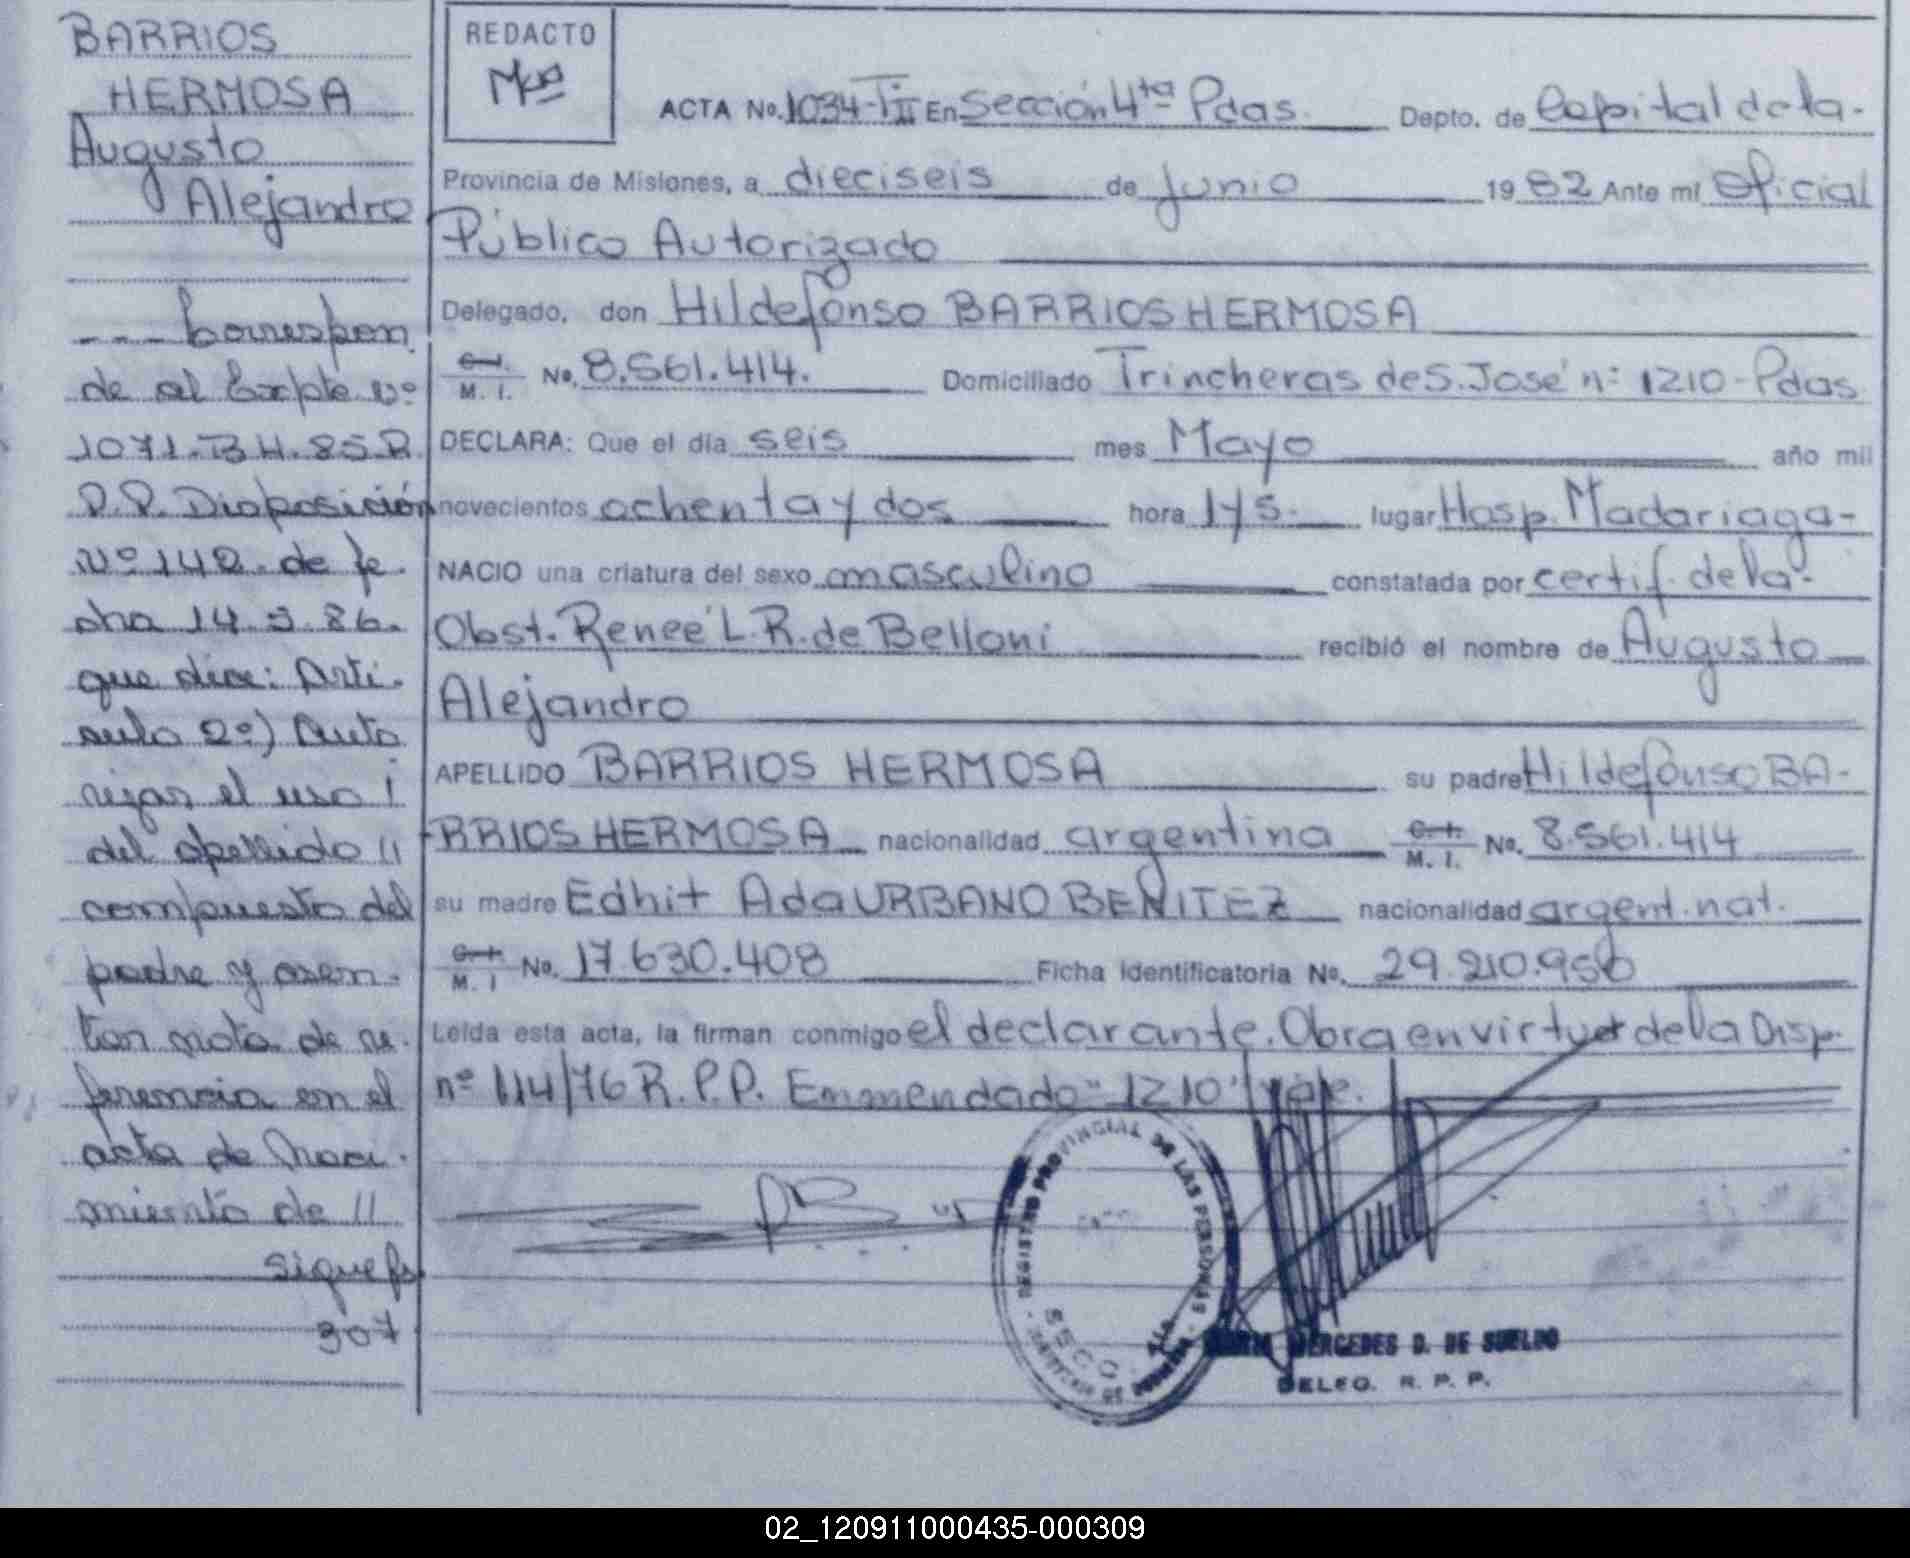 BARRIOS
HERMOSA
Augusto
Alejandro
--- Correspon
de al Expte nº
1071.B H.85.R.
P.P. Disposición
Nº 142. de fe.
cha 14.3.86.
que dice: Arti.
culo 2º) Auto
rizar el uso
del apellido //
compuesto del
padre y asen-
tar nota de re.
ferencia en el
acta de Naci.
miento de //
sigue fs
307
REDACTO
ACTA No. 1034-T II En Sección 4ta Pdas. Depto. de Capital de la-
Provincia de Misiones, a dieciseis de Junio 19 82 Ante mi Oficial
Público Autorizado
Delegado, don Hildefonso BARRIOS HERMOSA
C.I. M. I. No. 8.561.414. Domiciliado Trincheras de S. José nº 1210-Pdas
DECLARA: Que el día seis mes Mayo año mil
novecientos ochenta y dos hora 1 y 5. lugar Hosp. Madariaga-
NACIO una criatura del sexo masculino constatada por certif. de la-
Obst. Reneé L.R. de Belloni recibió el nombre de Augusto
Alejandro
APELLIDO BARRIOS HERMOSA su padre Hildefonso BA-
RRIOS HERMOSA nacionalidad argentina C.I. M. I. No. 8.561.414
su madre Edhit Ada URBANO BENITEZ nacionalidad argent. nat.
C.I. M. I No. 17.630.408 Ficha identificatoria No. 29.210.956
Leída esta acta, la firman conmigo el declarante. Obra en virtud de la Disp.
nº 114/76 R.P.P. Emmendado "1210" vale.
REGISTRO PROVINCIAL DE LAS PERSONAS
SECC. 4ta
MERCEDES D. DE SUELDO
DELEG. R. P. P.
02_120911000435-000309